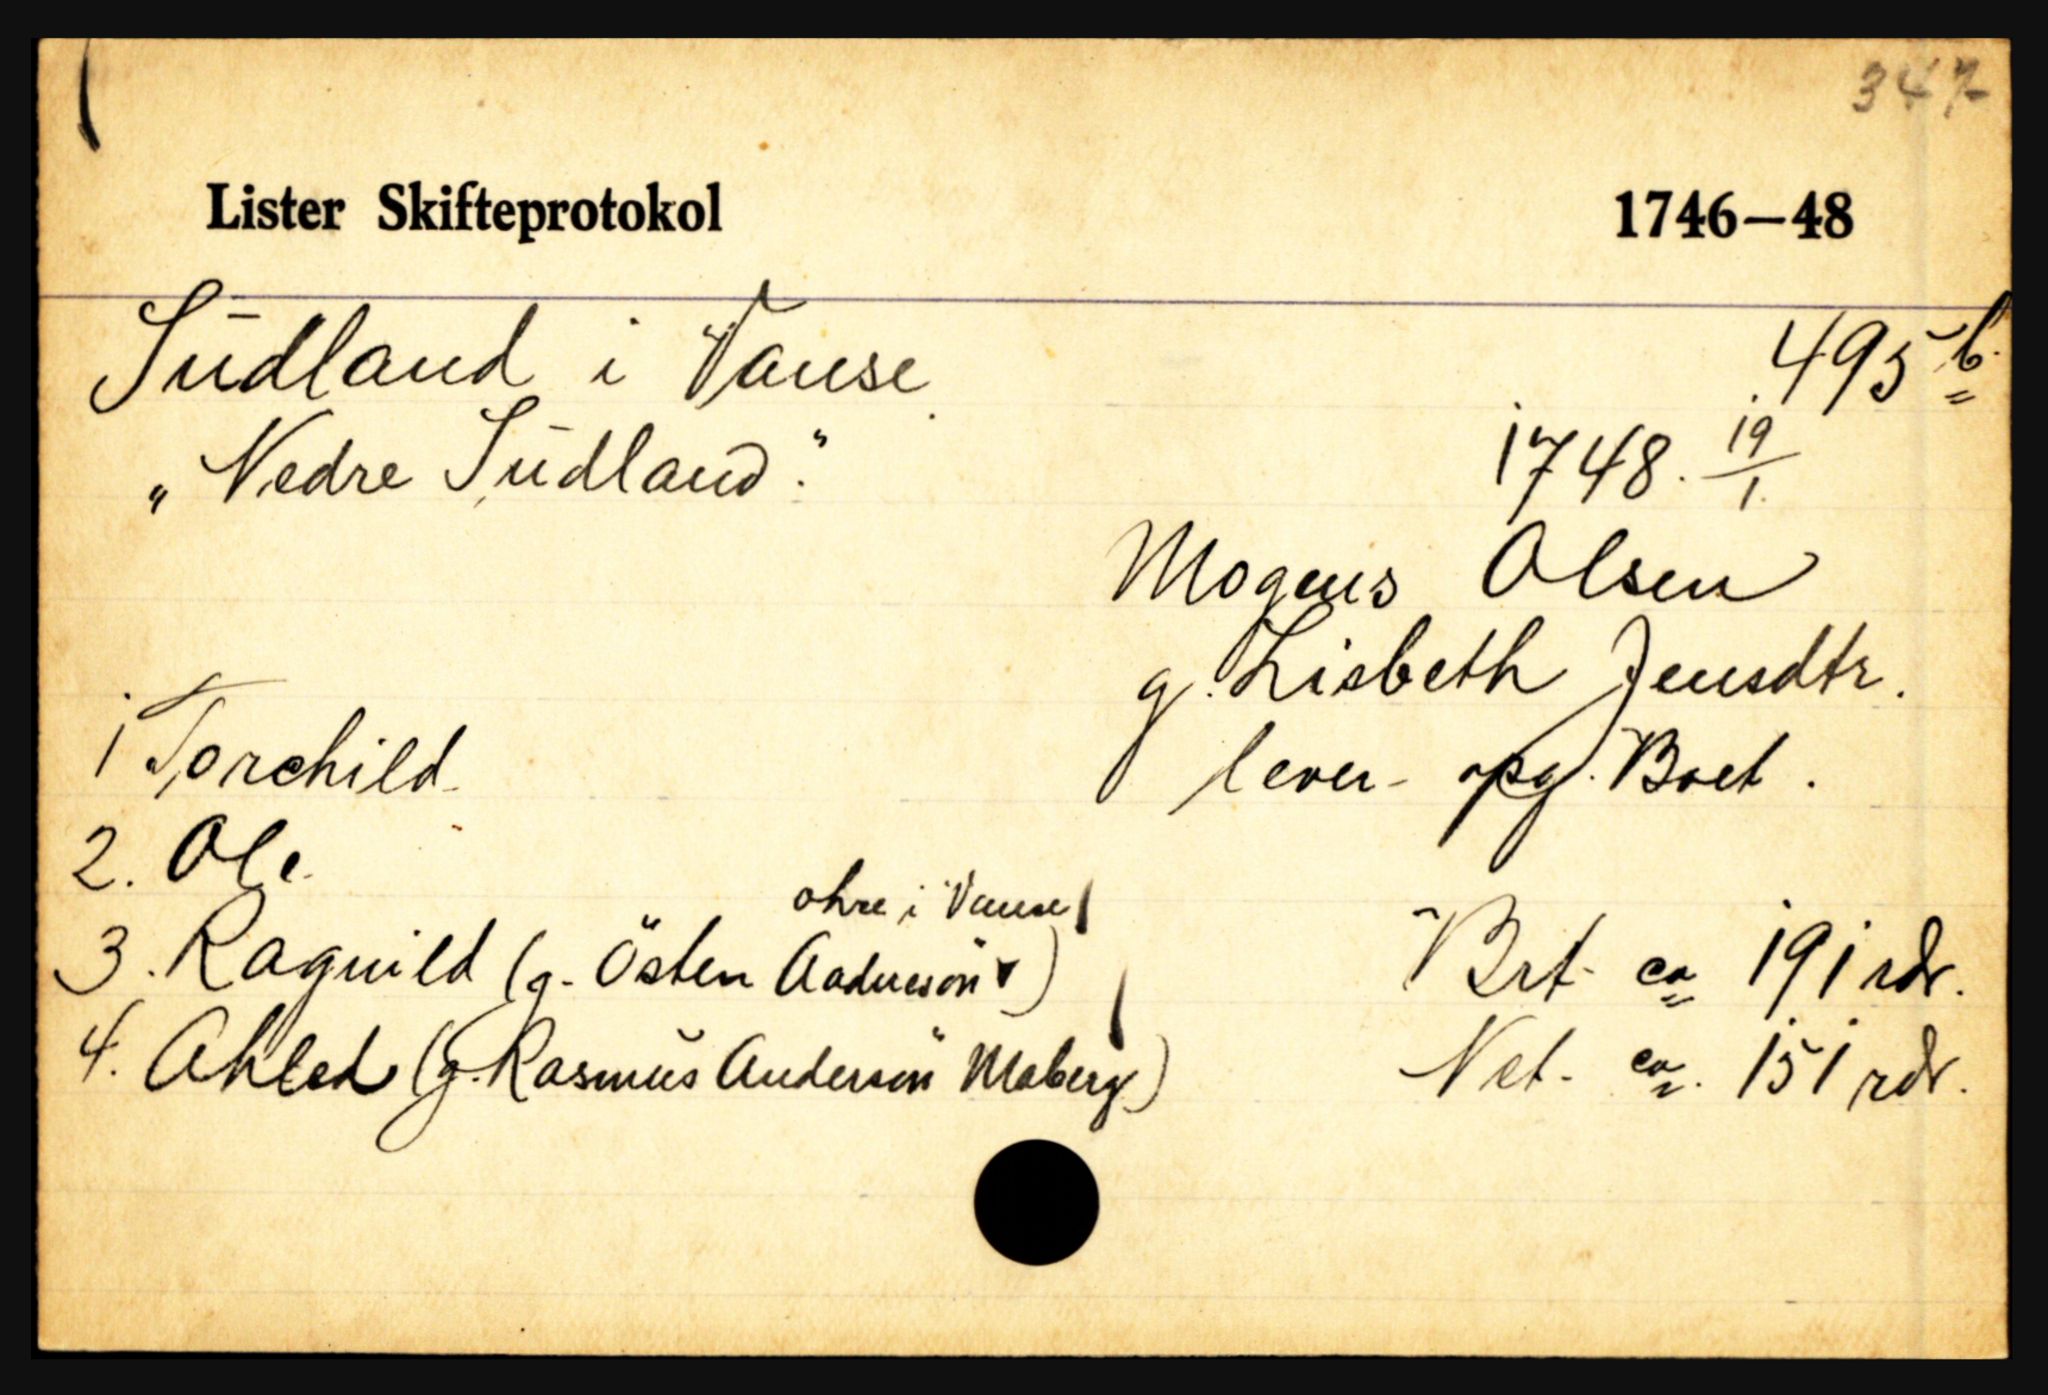 347
Lister Skifteprotokol 1746–48
Sūdland i Vanse 495 b.
„Nedre Sūdland." 1748. 19/1.
Mogens Olsen
g. Lisbeth Jensdtr.
1 Torchild lever - opg. Boet.
2. Ole.
ohre i Vanse
3. Ragnild (g. Østen Aadnesøn) Brt. ca 191 rdr.
4. Ahled (g. Rasmus Andersøn Maberg) Net. ca. 151 rdr.